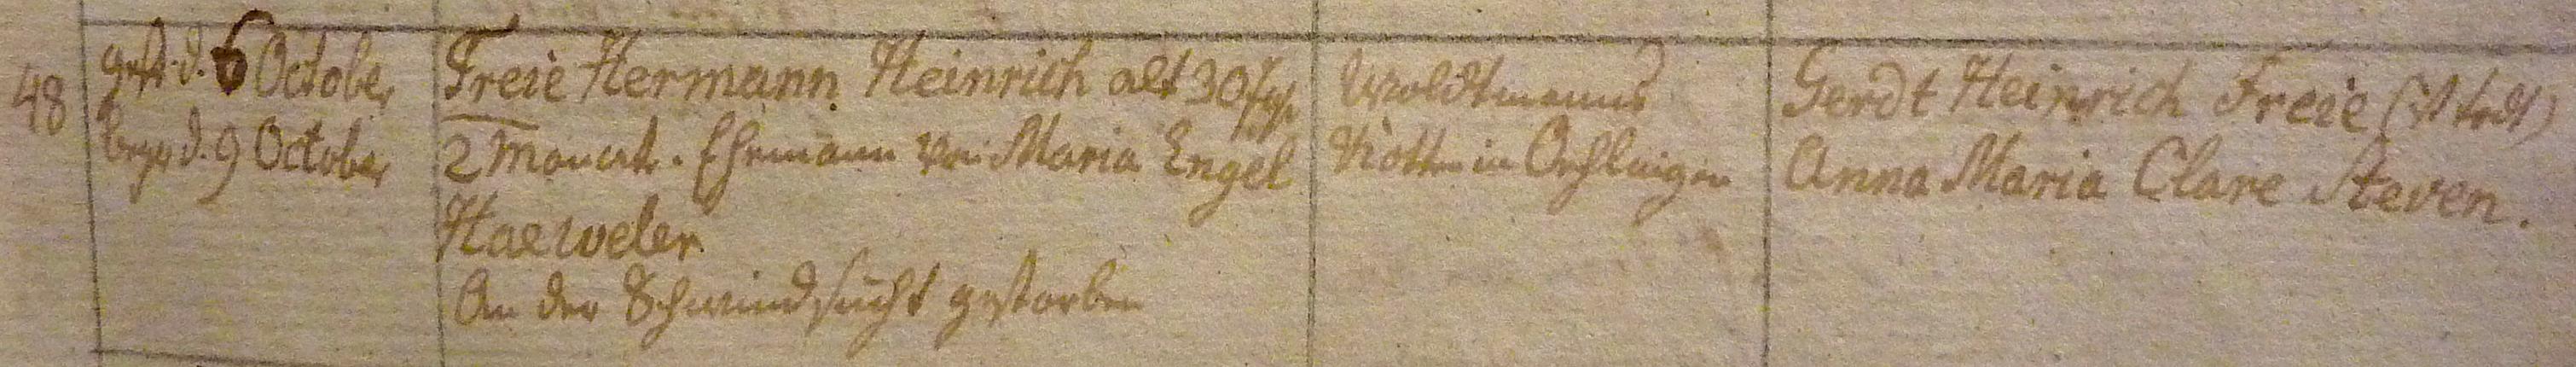 48
gest. d. 6 October
begr. d. 9 October
Freie Hermann Heinrich alt 30 Jahr
2 Monat. Ehemann von Maria Engel
Haeweler
An der Schwindsucht gestorben
Woldtmanns
Kotten in Oechlingen
Gerdt Heinrich Freie
Anna Maria Clare Steven.